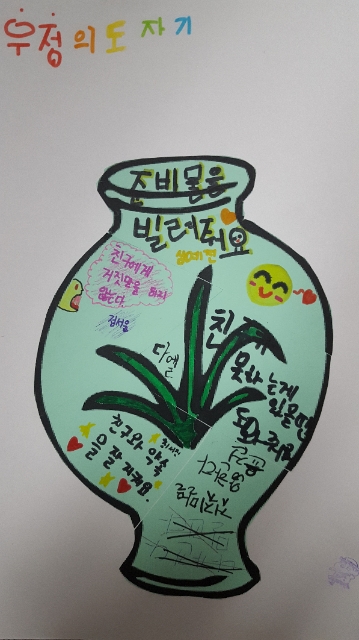 우정의도자기
준비물을
빌려줘요
친구에게
거짓말을 하지
않는다.
다엘
친구가
못하는게
있을때
도와줘요
친구와 약속
을 잘 지켜요.